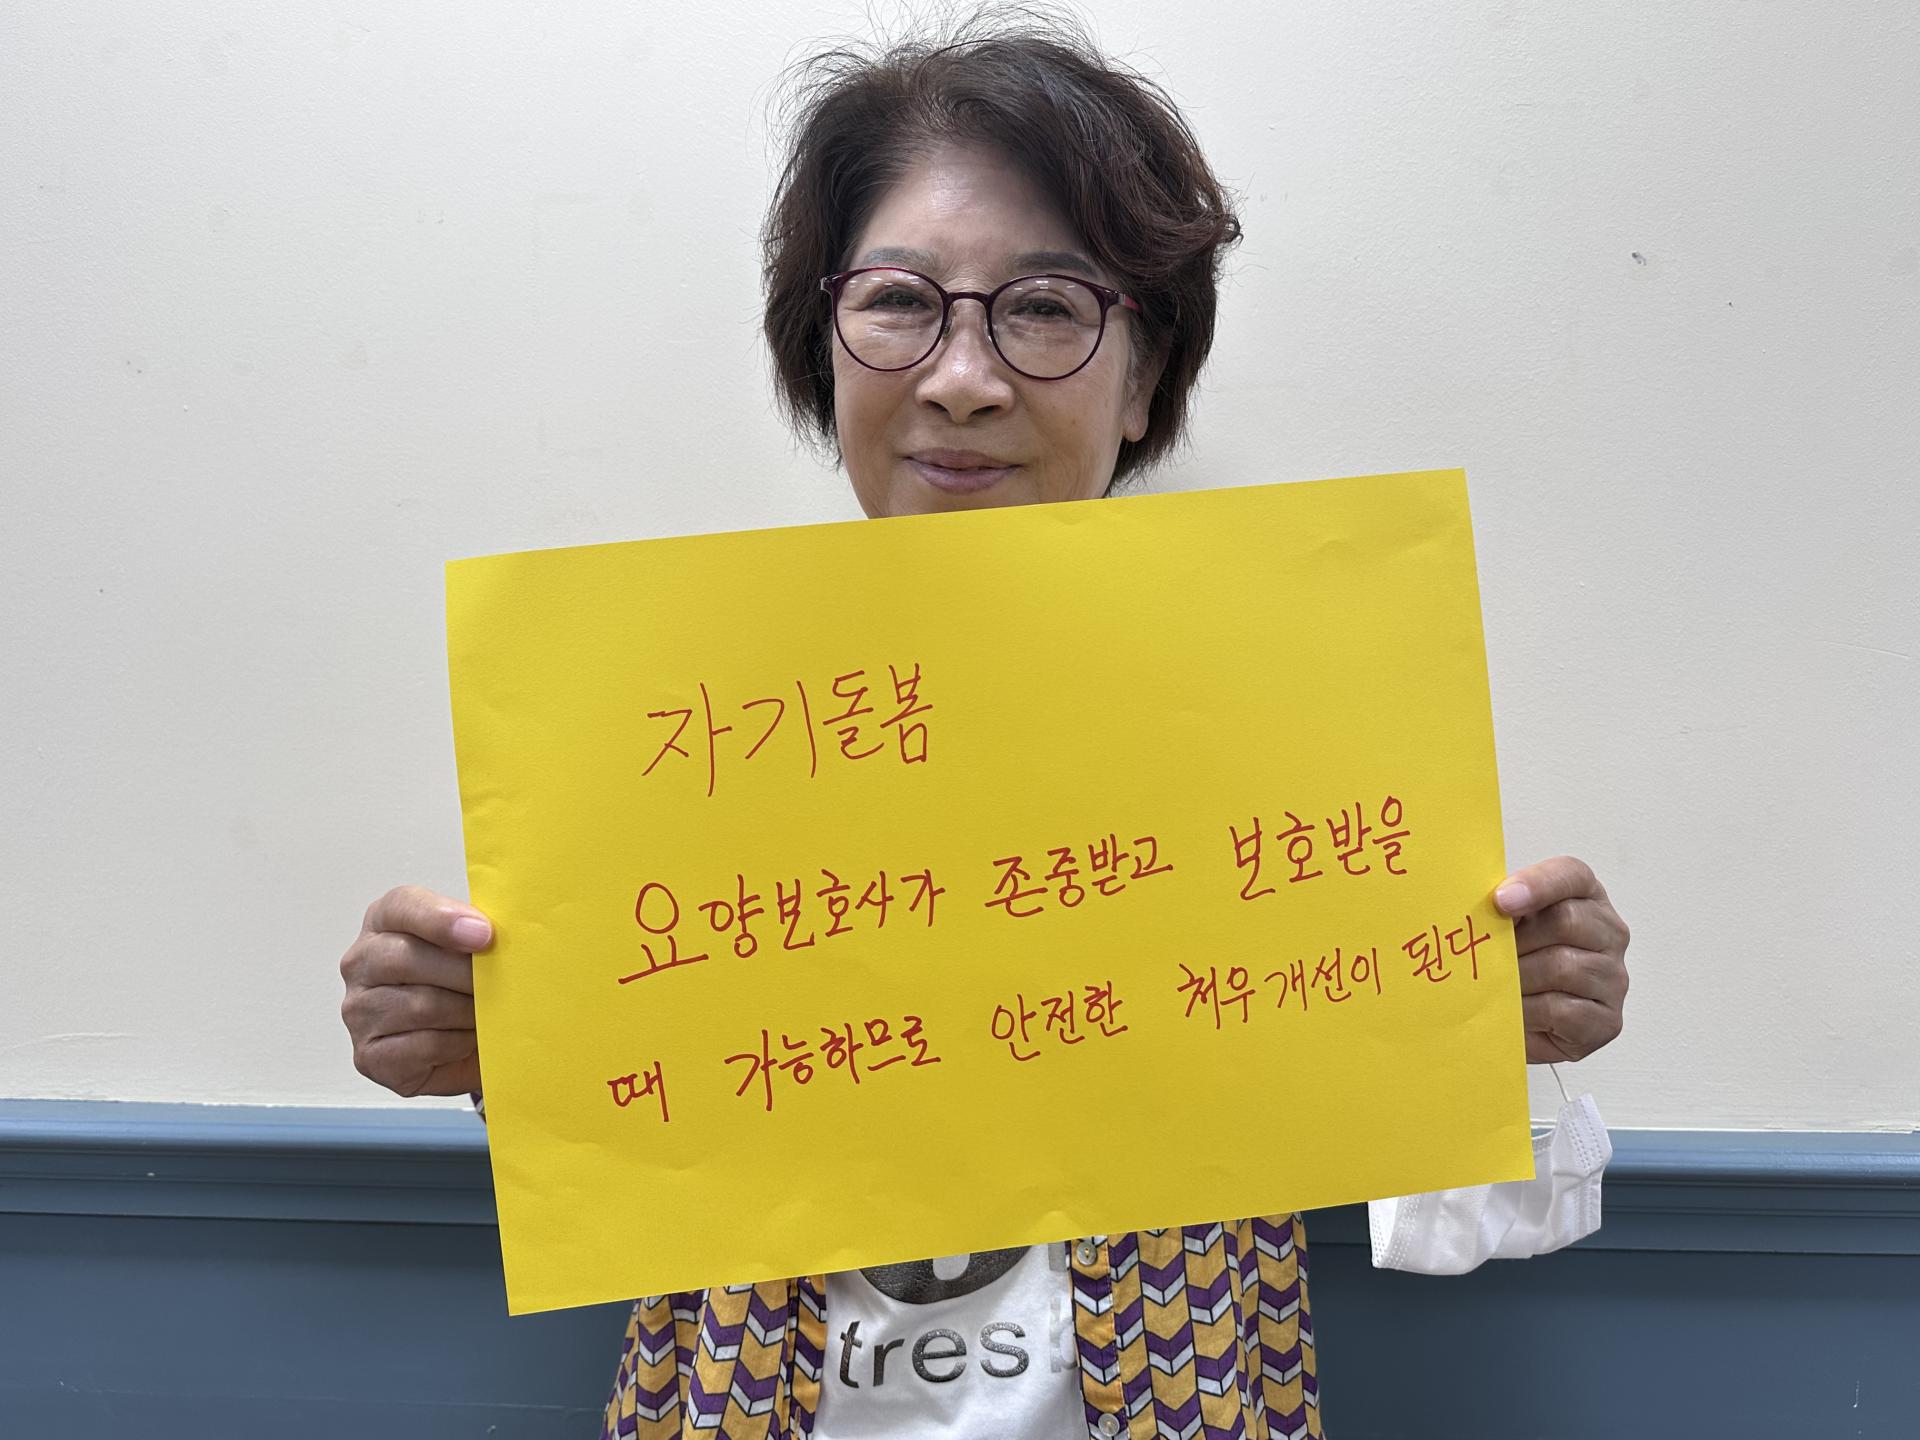 자기돌봄
요양보호사가 존중받고 보호받을
때 가능하므로 안전한 처우개선이 된다
tres